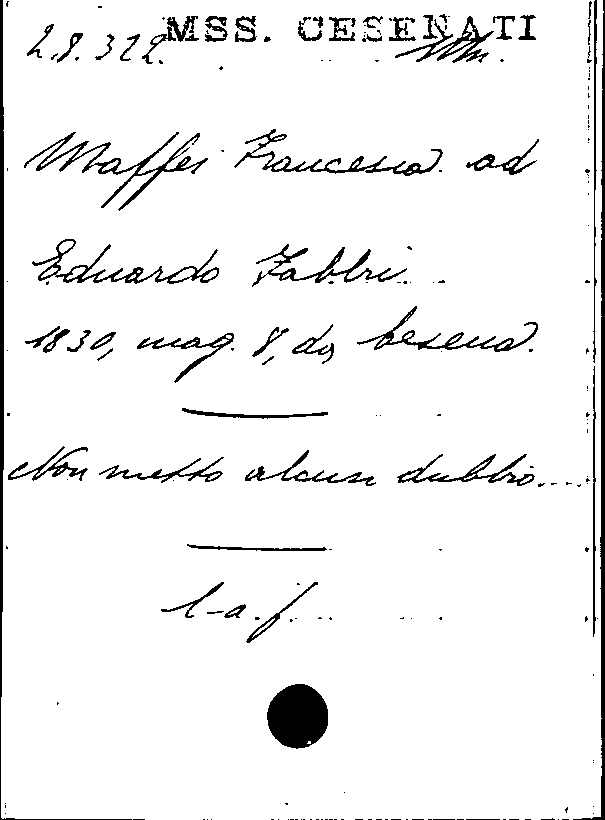 MSS. CESENATI
28.322.
Maffei Francesca ad
Eduardo Fabbri.
1830, mag. 8, da Cesena.
Non metto alcun dubbio....
l-a.f.